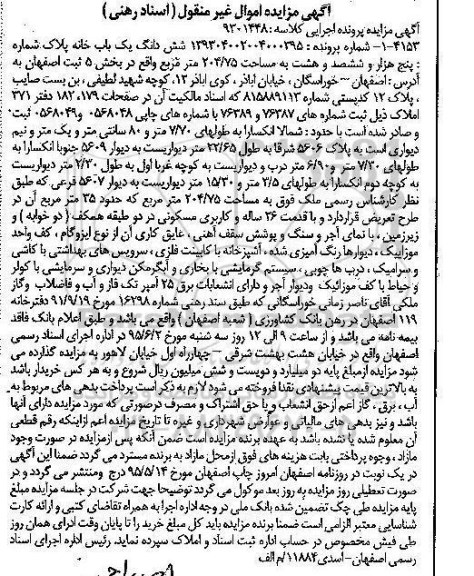 آگهی مزایده اموال غیر منقول ( اسناد رهنی )
آگهی مزایده پرونده اجرایی کلاسه: ۹۳۰۱۴۴۸
۴۱۵۳-۱- شماره پرونده: ۱۳۹۳۰۴۰۰۲۰۰۴۰۰۰۲۹۵ شش دانگ یک باب خانه پلاک شماره
: پنج هزار و ششصد و هشت به مساحت ۲۰۴/۷۵ متر مربع واقع در بخش ۵ ثبت اصفهان به
آدرس: اصفهان – خوراسگان، خیابان اباذر، کوی اباذر ۱۳، کوچه شهید لطیفی، بن بست صایب
، پلاک ۱۲ کدپستی شماره ۸۱۵۸۸۹۱۱۳ که اسناد مالکیت آن در صفحات ۱۷۹،۱۸۲ دفتر ۳۷۱
املاک ذیل ثبت شماره های ۷۶۳۸۷ و ۷۶۳۸۹ با شماره های چاپی ۰۵۶۸۰۴۸ و ۰۵۶۸۰۴۹ ثبت
و صادر شده است با حدود: شمالا انکسارا به طولهای ۷/۷۰ متر و ۸۰ سانتی متر و یک متر و نیم
دیواری است به پلاک ۵۶۰۶ شرقا به طول ۲۲/۶۵ متر دیواریست به دیوار ۵۶۰۹ جنوبا انکسارا به
طولهای ۷/۳۰ متر و ۶/۹۰ متر درب و دیواریست به کوچه غربا اول به طول ۲/۳۰ متر دیواریست
به کوچه دوم انکسارا به طولهای ۳/۵ متر و ۱۵/۳۰ متر دیواریست به دیوار ۵۶۰۷ فرعی که طبق
نظر کارشناس رسمی ملک فوق به مساحت ۲۰۴/۷۵ متر مربع که حدود ۳۵ متر مربع آن در
طرح تعریض قراردارد و با قدمت ۲۶ ساله و کاربری مسکونی در دو طبقه همکف ( دو خوابه ) و
زیرزمین، با نمای آجر و سنگ و پوشش سقف آهنی، عایق کاری آن از نوع ایزوگام، کف واحد
موزاییک، دیوارها رنگ آمیزی شده، آشپزخانه با کابینت فلزی، سرویس های بهداشتی با کاشی
و سرامیک، درب ها چوبی، سیستم گرمایشی با بخاری و آبگرمکن دیواری و سرمایشی با کولر
و حیاط با کف موزائیک ودیوار آجر و دارای انشعابات برق ۲۵ آمپر تک فاز و آب و فاضلاب وگاز
ملکی آقای ناصر زمانی خوراسگانی که طبق سند رهنی شماره ۱۶۲۹۸ مورخ ۹۱/۹/۱۹ دفترخانه
۱۱۹ اصفهان در رهن بانک کشاورزی ( شعبه اصفهان ) واقع می باشد و طبق اعلام بانک فاقد
بیمه نامه می باشد و از ساعت ۹ الی ۱۲ روز سه شنبه مورخ ۹۵/۶/۲ در اداره اجرای اسناد رسمی
اصفهان واقع در خیابان هشت بهشت شرقی – چهارراه اول خیابان لاهور به مزایده گذارده می
شود مزایده ازمبلغ پایه دو میلیارد و دویست و شش میلیون ریال شروع و به هر کس خریدار باشد
به بالاترین قیمت پیشنهادی نقدا فروخته می شود لازم به ذکر است پرداخت بدهی های مربوط به
آب، برق، گاز اعم از حق انشعاب و یا حق اشتراک و مصرف درصورتی که مورد مزایده دارای آنها
باشد و نیز بدهی های مالیاتی و عوارض شهرداری و غیره تا تاریخ مزایده اعم ازاینکه رقم قطعی
آن معلوم شده یا نشده باشد به عهده برنده مزایده است ضمن آنکه پس ازمزایده در صورت وجود
مازاد، وجوه پرداختی بابت هزینه های فوق ازمحل مازاد به برنده مسترد می گردد ضمنا این آگهی
در یک نوبت در روزنامه اصفهان امروز چاپ اصفهان مورخ ۹۵/۵/۱۴ درج ومنتشر می گردد و در
صورت تعطیلی روز مزایده به روز بعد موکول می گردد توضیحا جهت شرکت در جلسه مزایده مبلغ
پایه مزایده طی چک تضمین شده بانک ملی در وجه اداره اجرا به همراه تقاضای کتبی و ارائه کارت
شناسایی معتبر الزامی است ضمنا برنده مزایده باید کل مبلغ خرید را تا پایان وقت اداری همان روز
طی فیش مخصوص در حساب اداره ثبت اسناد و املاک سپرده نماید. رئیس اداره اجرای اسناد
رسمی اصفهان – اسدی ۱۱۸۸۴/م الف